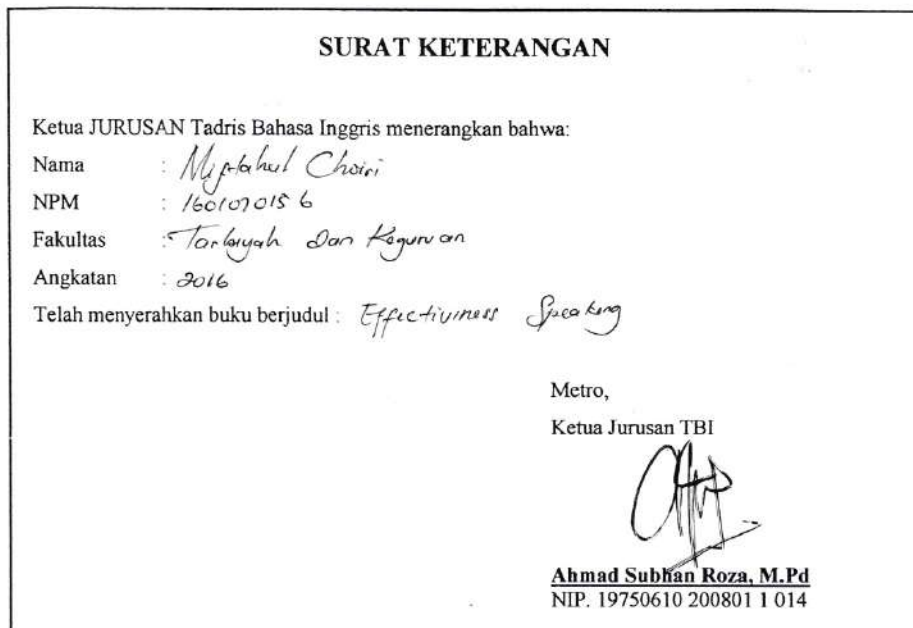 SURAT KETERANGAN
Ketua JURUSAN Tadris Bahasa Inggris menerangkan bahwa:
Nama : Miftahul Choiri
NPM : 1601070156
Fakultas : Tarbiyah Dan Keguruan
Angkatan : 2016
Telah menyerahkan buku berjudul : Effectiviness Speaking
Metro,
Ketua Jurusan TBI
Ahmad Subhan Roza, M.Pd
NIP. 19750610 200801 1 014